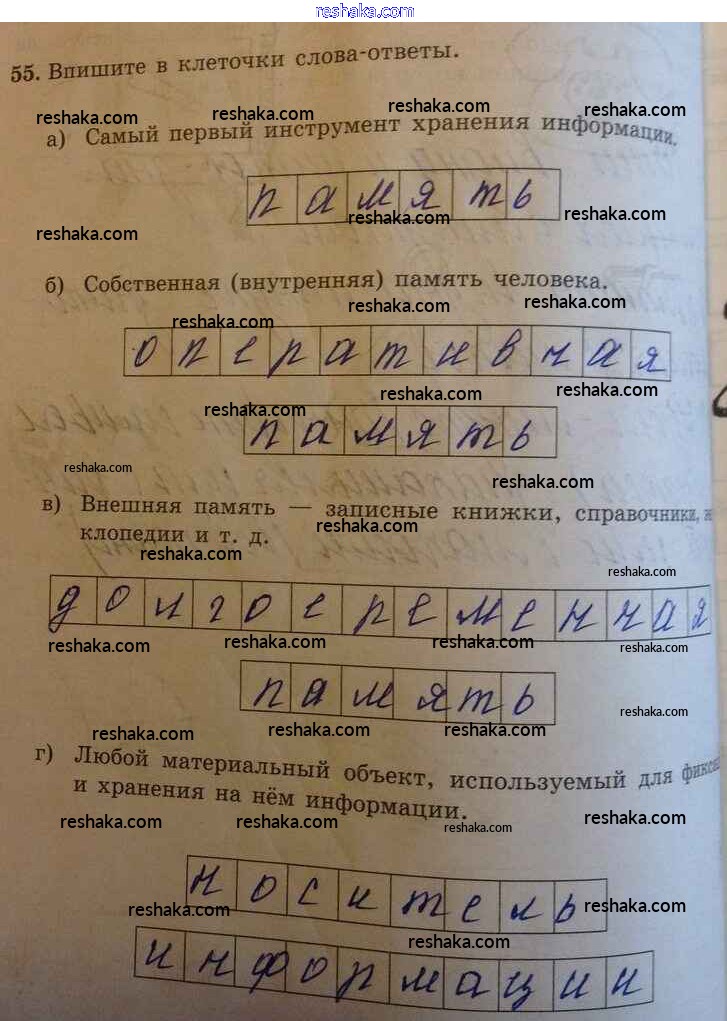 reshaka.com
55. Впишите в клеточки слова-ответы.
reshaka.com reshaka.com reshaka.com reshaka.com
а) Самый первый инструмент хранения информации.
память
reshaka.com reshaka.com
reshaka.com
б) Собственная (внутренняя) память человека.
reshaka.com reshaka.com reshaka.com
оперативная
reshaka.com reshaka.com
reshaka.com
память
reshaka.com
reshaka.com
в) Внешняя память — записные книжки, справочники,
reshaka.com
клопедии и т. д.
reshaka.com
reshaka.com
долгоеременная
reshaka.com reshaka.com reshaka.com reshaka.com
память
reshaka.com
reshaka.com reshaka.com reshaka.com
г) Любой материальный объект, используемый для
и хранения на нём информации.
reshaka.com reshaka.com reshaka.com reshaka.com
носитель
reshaka.com reshaka.com
информации
reshaka.com